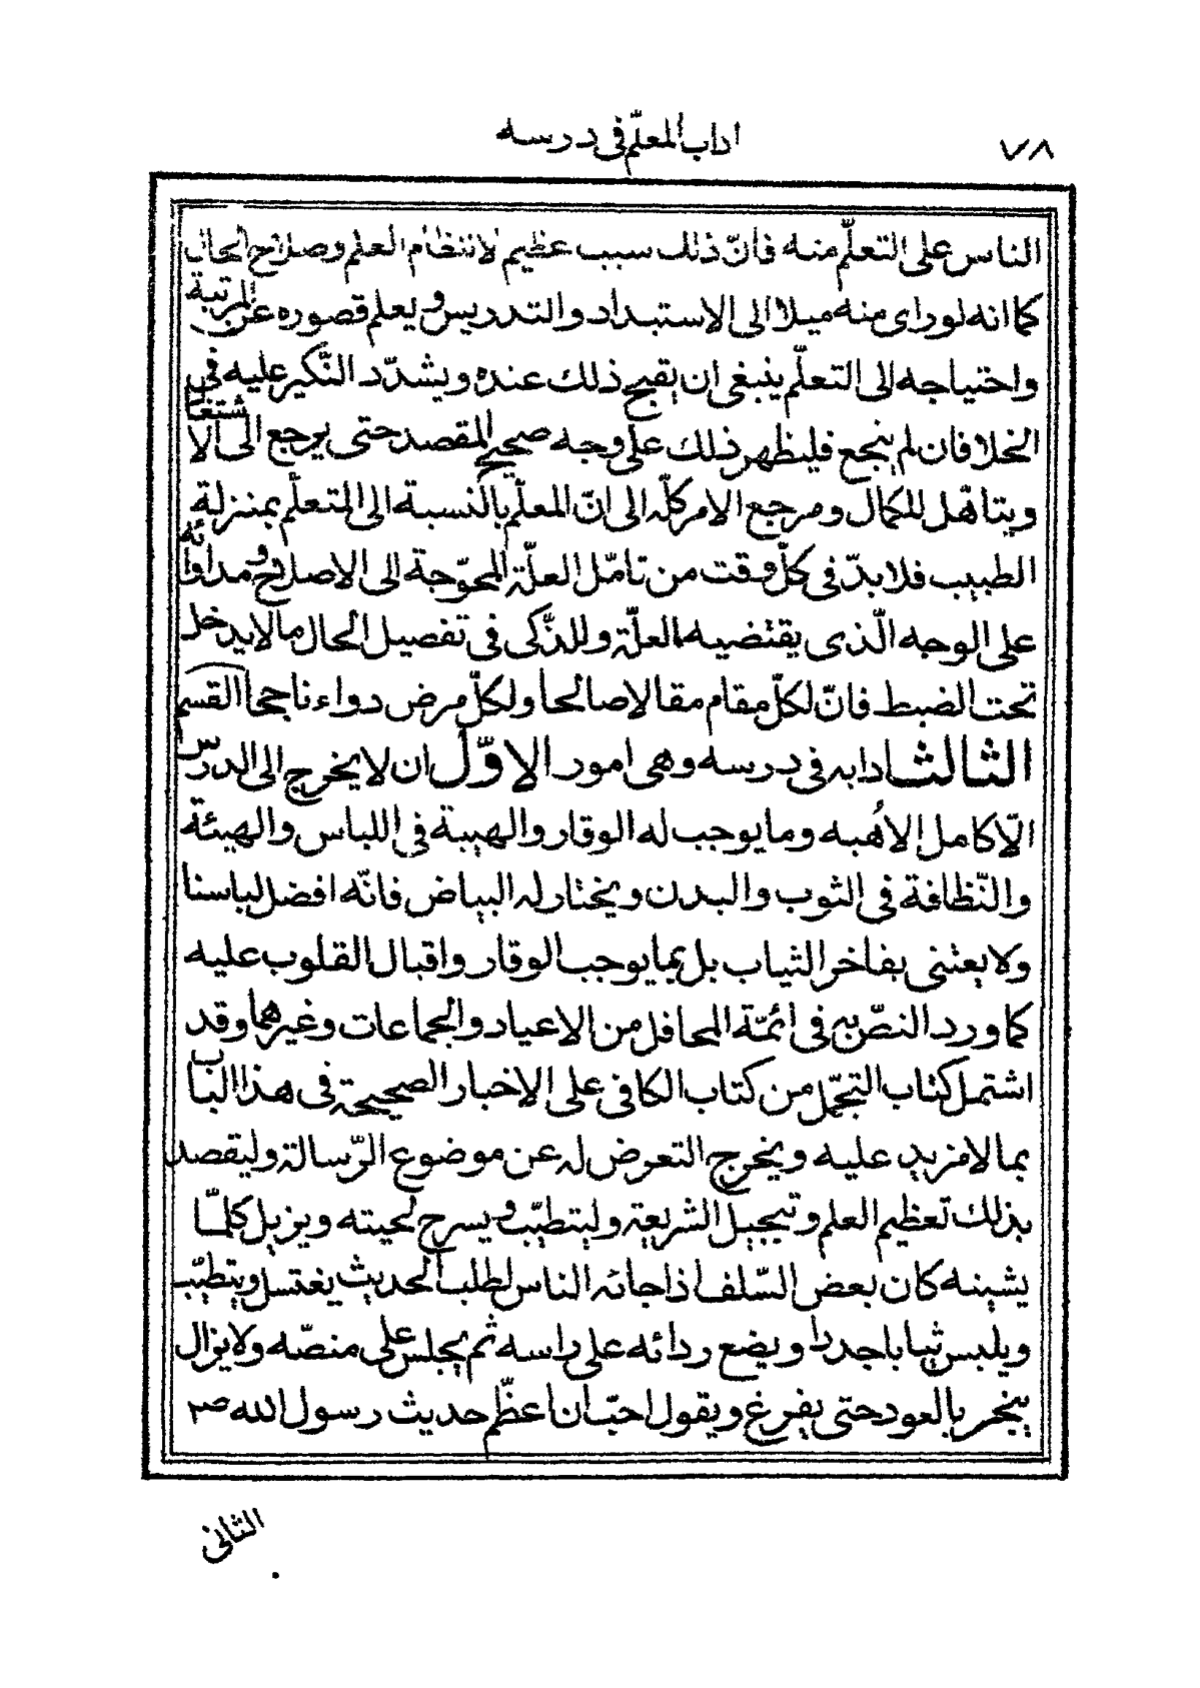 ٧٨
اداب المعلّم فى درسه
الناس على التعلّم منه فانّ ذلك سبب عظيم لانتظام العلم وصلاح الحال
كما انه لو راى منه ميلا الى الاستبداد والتدريس و يعلم قصوره عن المرتبة
واحتياجه الى التعلّم ينبغى ان يقبح ذلك عنده ويشدّد النّكير عليه فى
الخلا فان لم ينجع فليظهر ذلك على وجه صحيح المقصد حتى يرجع الى الاشتغال
ويتاهّل للكمال ومرجع الامر كلّه الى انّ المعلّم بالنسبة الى المتعلّم بمنزلة
الطبيب فلا بدّ فى كلّ وقت من تامّل العلّة المحوّجة الى الاصلاح و مداواته
على الوجه الّذى يقتضيه العلّة وللذّكى فى تفصيل الحال ما لا يدخل
تحت الضبط فانّ لكلّ مقام مقالا صالحا ولكلّ مرض دواء ناجحا القسم
الثالث ادابه فى درسه وهى امور الاوّل ان لا يخرج الى الدرس
الّا كامل الاُهبه وما يوجب له الوقار والهيبة فى اللباس والهيئة
والنّظافة فى الثوب والبدن ويختار له البياض فانّه افضل لباسنا
ولا يعتنى بفاخر الثياب بل بما يوجب الوقار واقبال القلوب عليه
كما ورد النصّ به فى ائمّة المحافل من الاعياد والجماعات وغيرهما وقد
اشتمل كتاب التجمّل من كتاب الكافى على الاخبار الصحيحة فى هذا الباب
بما لا مزيد عليه ويخرج التعرض له عن موضوع الرّسالة وليقصد
بذلك تعظيم العلم وتبجيل الشريعة وليتطيّب و يسرح لحيته ويزيل كلّما
يشينه كان بعض السّلف اذا جائه الناس لطلب الحديث يغتسل ويتطيّب
ويلبس ثيابا جددا ويضع ردائه على راسه ثم يجلس على منصّه ولا يزال
يبخر بالعود حتى يفرغ ويقول احبّ ان اعظّم حديث رسول الله ص
الثانى